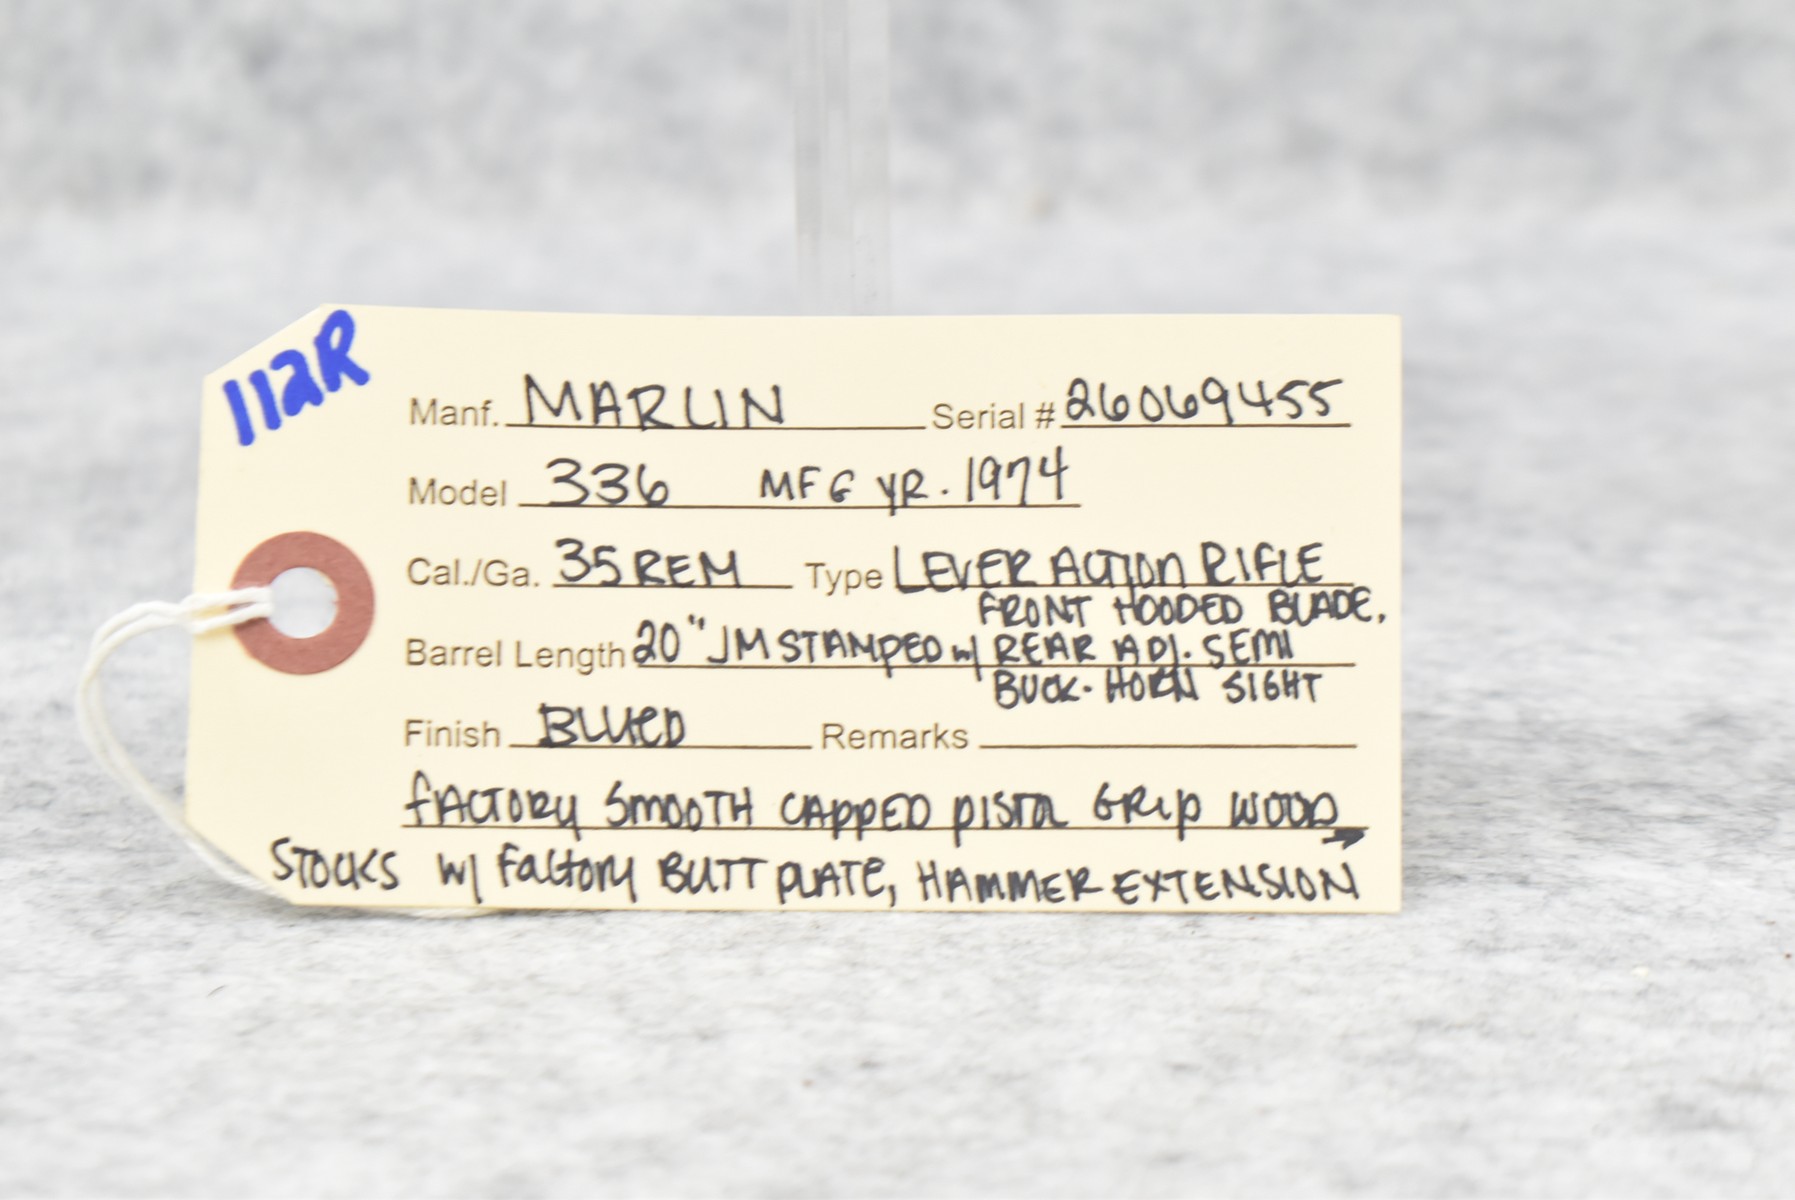 112R
Manf. MARLIN Serial # 26069455
Model 336 MFG YR. 1974
Cal./Ga. 35 REM Type LEVER ACTION RIFLE
FRONT HOODED BLADE,
Barrel Length 20" JM STAMPED w/ REAR ADJ. SEMI
BUCK-HORN SIGHT
Finish BLUED Remarks
FACTORY SMOOTH CAPPED PISTOL GRIP WOOD →
STOCKS w/ FACTORY BUTT PLATE, HAMMER EXTENSION